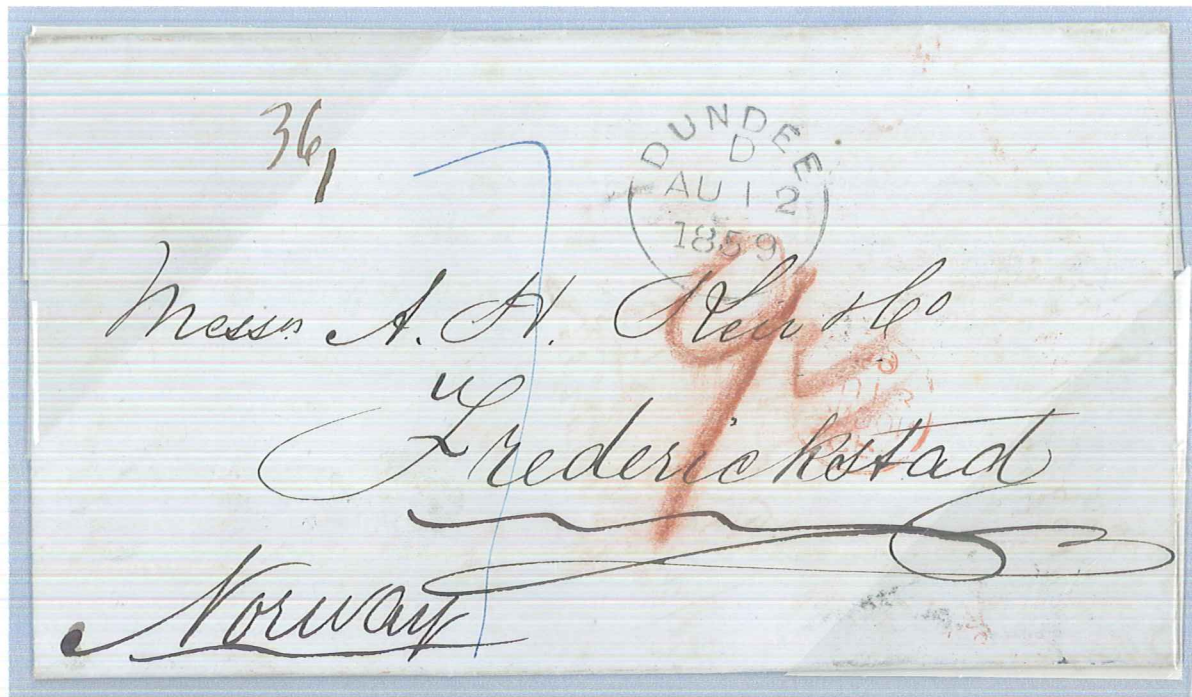 36,
DUNDEE
D
AU 12
1859
7
92
Messrs. A. H. & Co
Frederickstad
Norway